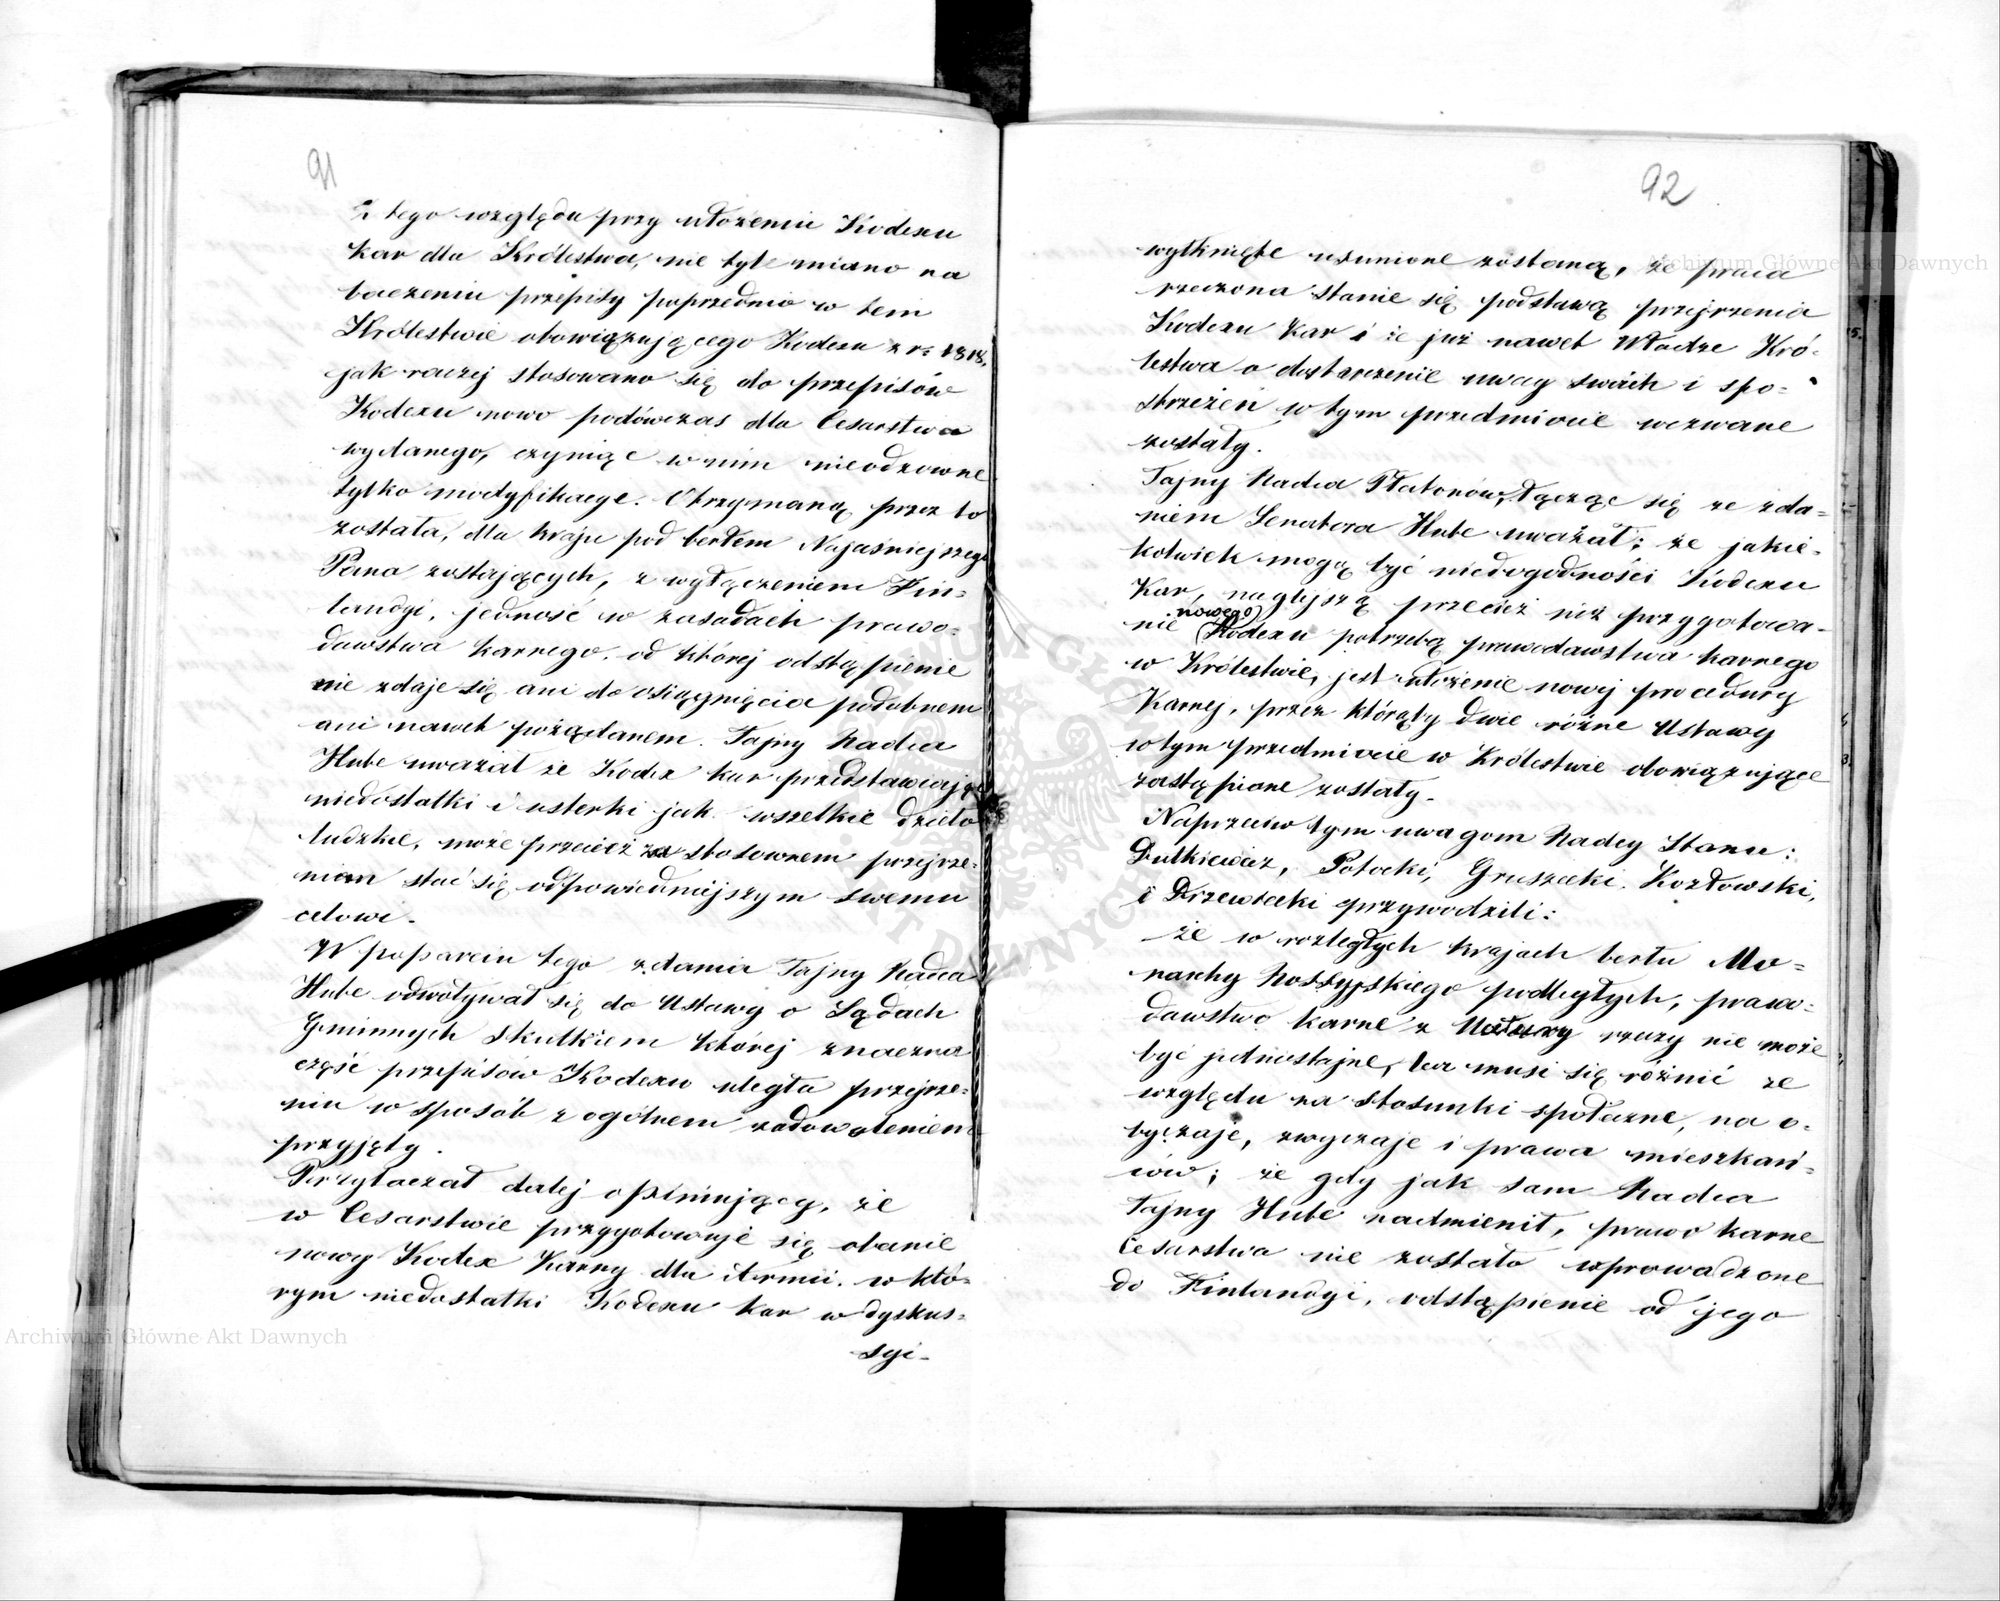 91
Z tego względu przy ułożeniu Kodexu
kar dla Królestwa, nie tyle miano na
baczeniu przepisy poprzednio w tem
Królestwie obowiązującego Kodexu z r: 1818,
jak raczej stosowano się do przepisów
Kodexu nowo podówczas dla Cesarstwa
wydanego, czyniąc w nim nieodzowne
tylko modyfikacye. Otrzymaną przez to
została, dla kraju pod berłem Najaśniejszego
Pana zostających, z wyłączeniem Fin-
landyi, jedność w zasadach prawo-
dawstwa karnego, od której odstąpienie
nie zdaje się ani do osiągnięcia podobnem
ani nawet pożądanem. Tajny Radca
Hube uważał że Kodex kar przedstawiając
niedostatki i usterki jak wszelkie dzieło
ludzkie, może przecież za stosownem przejrze-
niem stać się odpowiedniejszym swemu
celowi.
W poparciu tego zdania Tajny Radca
Hube odwoływał się do Ustawy o Sądach
Gminnych skutkiem której znaczna
część przepisów Kodexu uległa przejrze-
niu w sposób z ogólnem zadowoleniem
przyjęty.
Przytaczał dalej opiniujący, że
w Cesarstwie przygotowuje się obecnie
nowy Kodex Karny dla Armii, w któ-
rym niedostatki Kodexu kar w dyskus-
syi-
92
wytknięte usunione zostaną, że praca
rzeczona stanie się podstawą przejrzenia
Kodexu Kar i że już nawet Władze Kró-
lestwa o dostarczenie uwag swoich i spo-
strzeżeń w tym przedmiocie wezwane
zostały.
Tajny Radca Płatonów, łącząc się ze zda-
niem Senatora Hube uważał; że jakie-
kolwiek mogą być niedogodności Kodexu
Kar, naglejszą przecież niż przygotowa-
nowego
nie Kodexu potrzebą prawodawstwa karnego
w Królestwie, jest ułożenie nowej procedury
Karnej, przez którąby dwie różne Ustawy
w tym przedmiocie w Królestwie obowiązujące
zastąpione zostały.
Naprzeciw tym uwagom Radcy Stanu:
Dutkiewicz, Potocki, Gruszecki, Kozłowski,
i Drzewiecki przywodzili:
że w rozległych krajach berłu Mo-
narchy Rossyjskiego podległych, prawo-
dawstwo karne z Natury rzeczy nie może
być jednostajne, lecz musi się różnić ze
względu na stosunki społeczne, na o-
byczaje, zwyczaje i prawa mieszkań-
ców; że gdy jak sam Radca
Tajny Hube nadmienił, prawo karne
Cesarstwa nie zostało wprowadzone
do Finlandyi, odstąpienie od jego
Archiwum Główne Akt Dawnych
Archiwum Główne Akt Dawnych